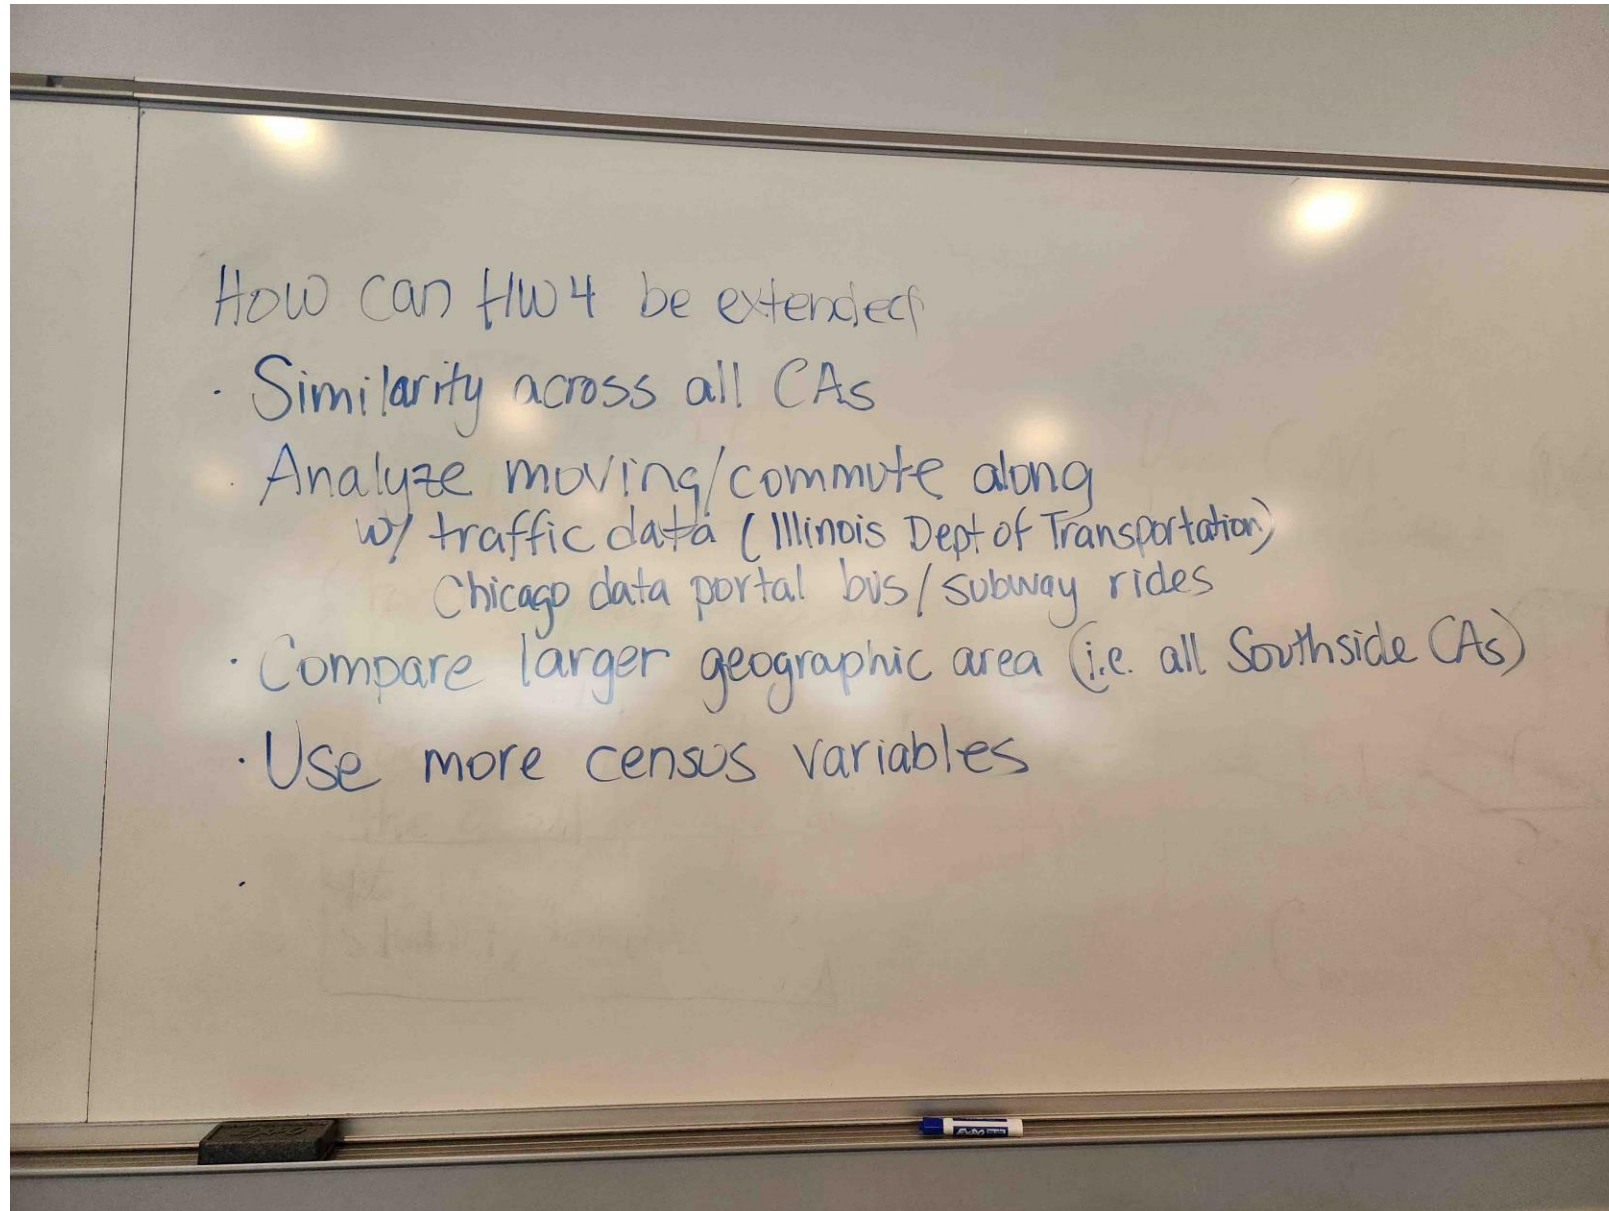 How can HW4 be extended
· Similarity across all CAs
· Analyze moving/commute along
w/ traffic data (Illinois Dept of Transportation)
Chicago data portal bus/subway rides
· Compare larger geographic area (i.e. all Southside CAs)
· Use more census variables
·
EXPO